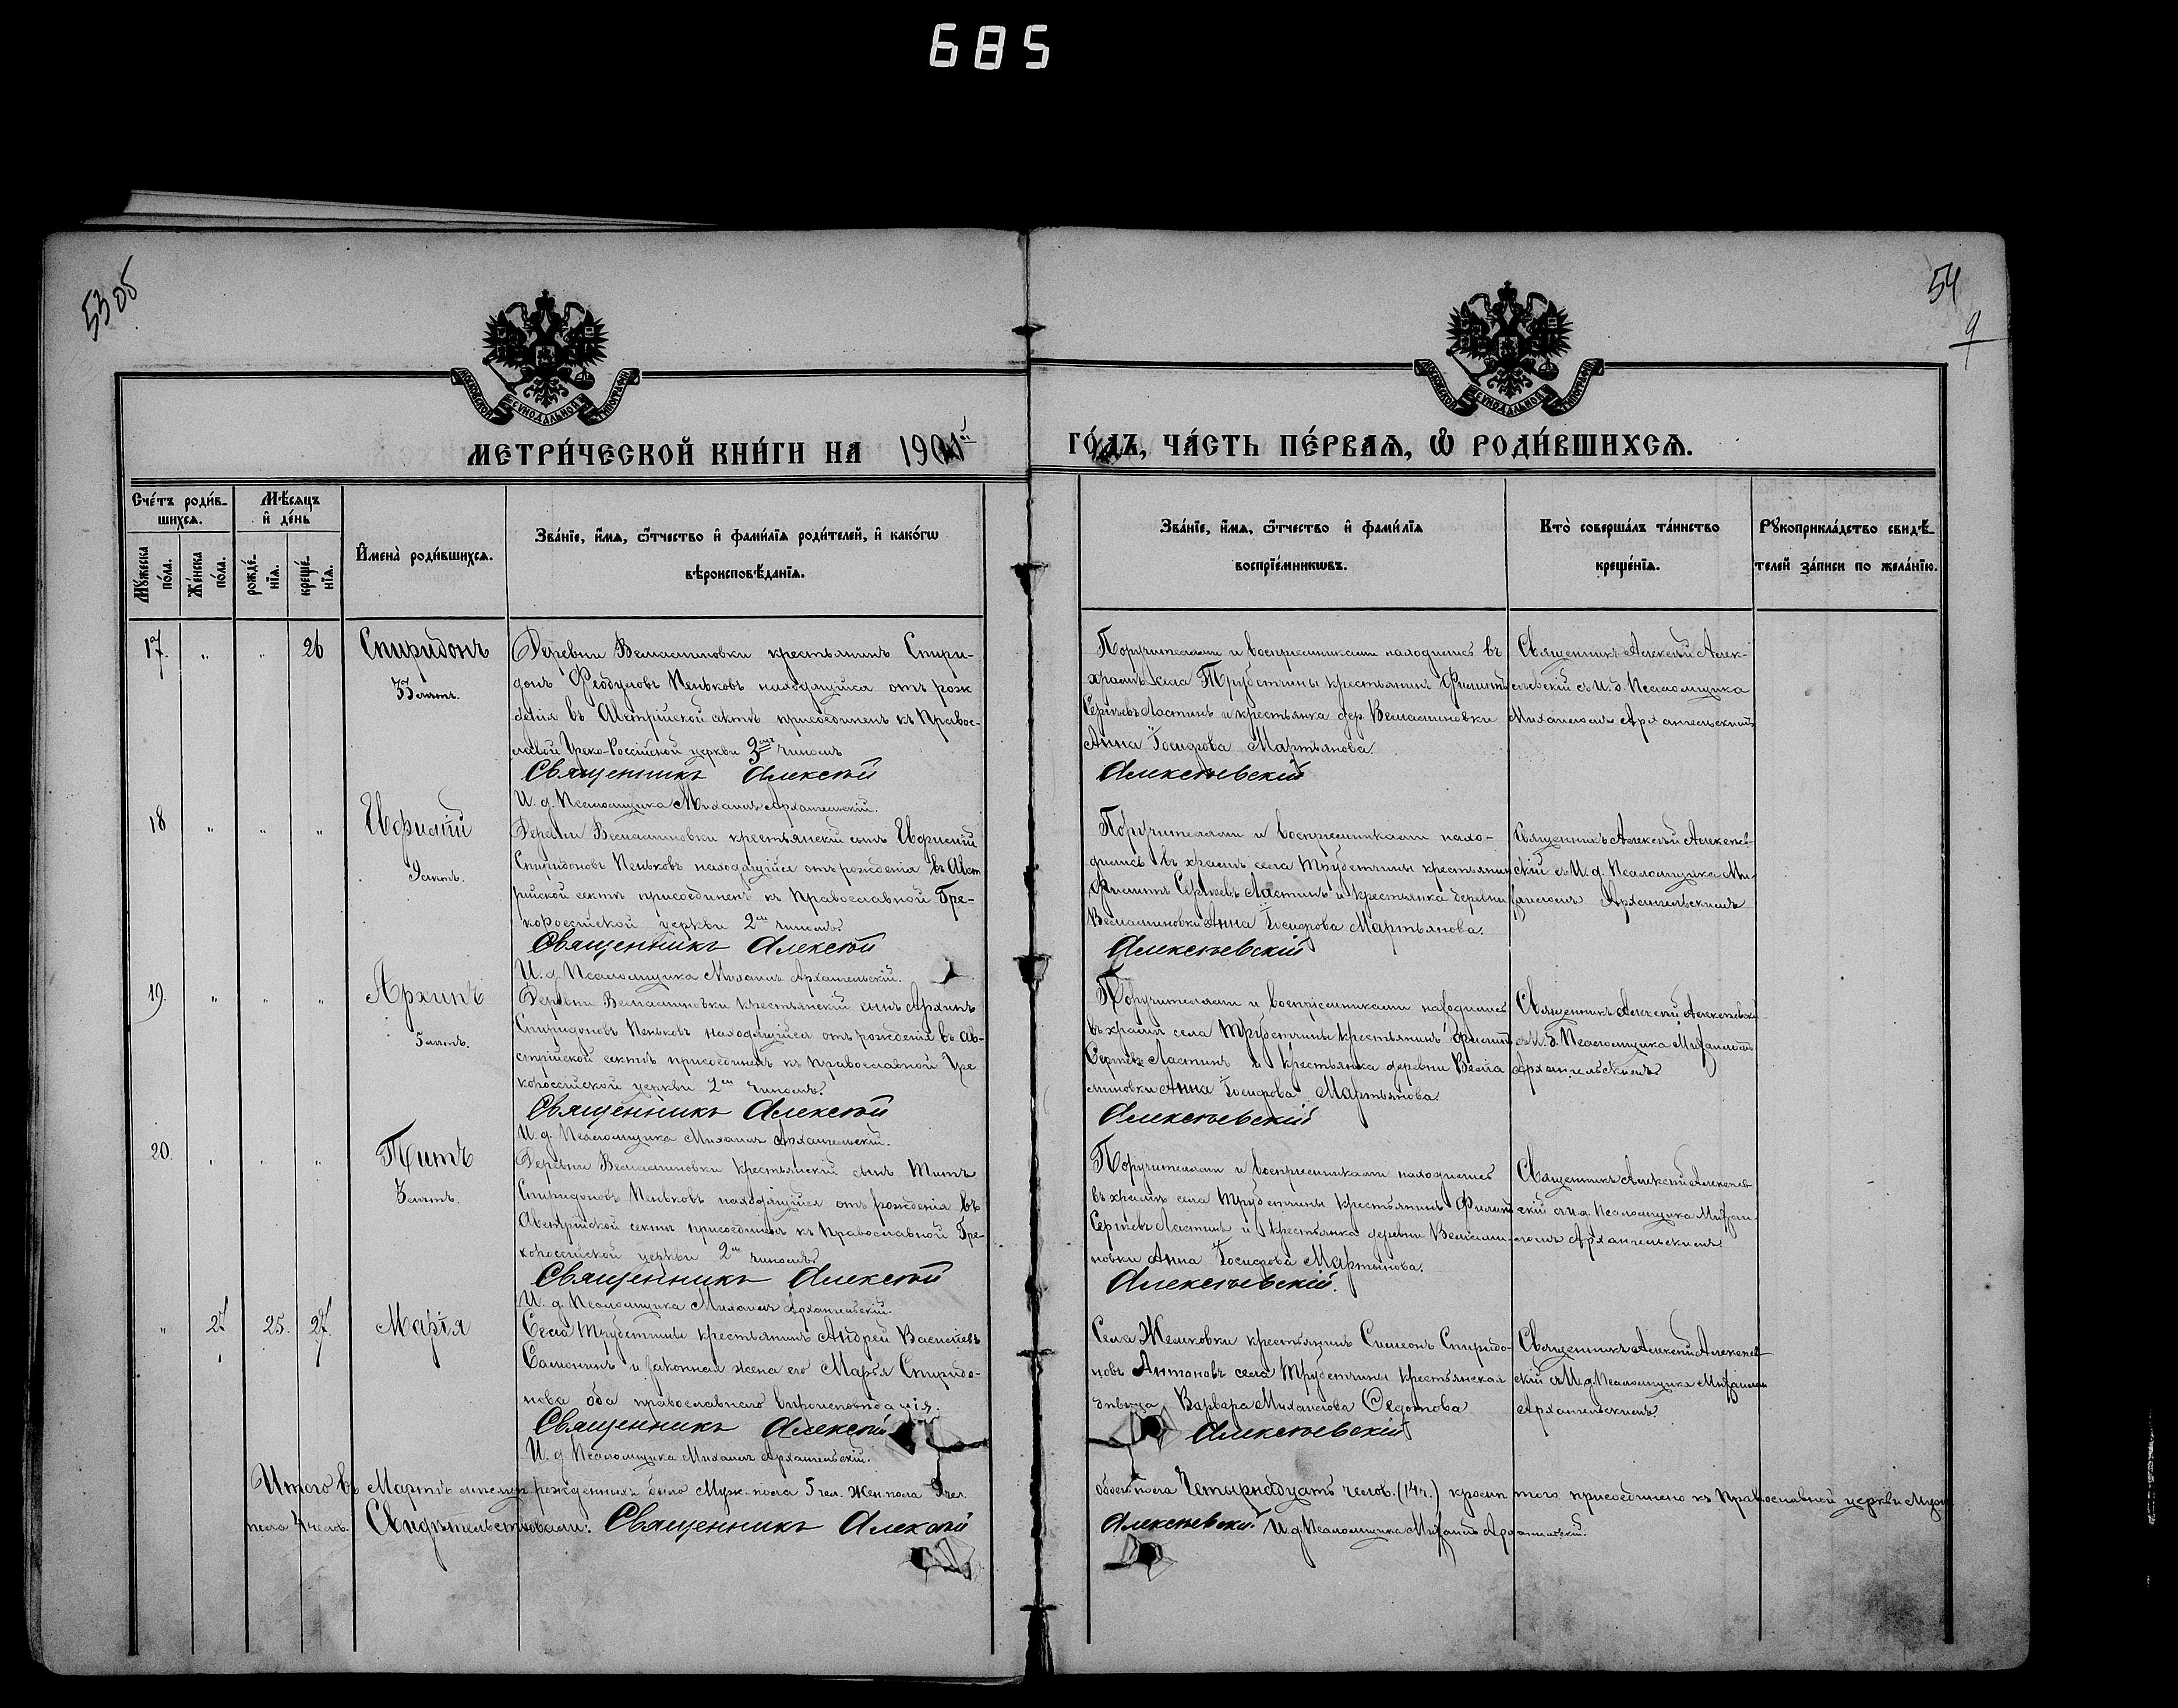 685
53 об
54
9
МОСКОВСКОЙ СѴНОДАЛЬНОЙ ТИПОГРАФІИ
МОСКОВСКОЙ СѴНОДАЛЬНОЙ ТИПОГРАФІИ
МЕТРИ́ЧЕСКОЙ КНИ́ГИ НА 1901й ГО́ДЪ, ЧА́СТЬ ПЕ́РВАЯ, Ѿ РОДИ́ВШИХСЯ.
Сче́тъ роди́в-
шихся.
Мꙋ́жеска по́ла.
Же́нска по́ла.
Мѣ́сяцъ
и҆ де́нь
рожде́-
нїя.
креще́-
нїя.
И҆мена̀ роди́вшихся.
Зва́нїе, и҆́мя, ѻ҆́тчество и҆ фами́лїя роди́телей, и҆ како́гѡ
вѣроисповѣ́данїя.
Зва́нїе, и҆́мя, ѻ҆́тчество и҆ фами́лїя
воспрїе́мникѡвъ.
Кто̀ соверша́лъ та́инство
креще́нїя.
Рꙋкоприкла́дство свидѣ́-
телей за́писи по жела́нїю.
17. " " 26 Спиридонъ
33 лѣтъ.
Деревни Вельяминовки крестьянинъ Спири-
донъ Ѳеодуловъ Пеньковъ находящійся отъ рож
денія въ Австрійской сектѣ присоединенъ къ Правос-
лавной Греко-Россійской церкви 3мъ чиномъ
Священникъ Алексѣй
И. д. Псаломщика Михаилъ Архангельскій.
Поручителями и воспріемниками находились въ
храмѣ села Трубетчины крестьянинъ Филиппъ
Сергѣевъ Ластинъ и крестьянка дер. Вельяминовки
Анна Іосифова Мартьянова.
Алексѣевскій
Священникъ Алексѣй Алек-
сѣевскій съ И. д. Псаломщика
Михаиломъ Архангельскимъ
18 " " " Евфимій
9 лѣтъ.
Деревни Вельяминовки крестьянскій сынъ Евфимій
Спиридоновъ Пеньковъ находящійся отъ рожденія въ Авст
рійской сектѣ присоединенъ къ Православной Гре-
короссійской церкви 2мъ чиномъ.
Священникъ Алексѣй
И. д. Псаломщика Михаилъ Архангельскій.
Поручителями и воспріемниками нахо-
дились въ храмѣ села Трубетчины крестьянинъ
Филиппъ Сергѣевъ Ластинъ и крестьянка деревни
Вельяминовки Анна Іосифова Мартьянова.
Алексѣевскій
Священникъ Алексѣй Алексѣев-
скій съ И. д. Псаломщика Ми-
хаиломъ Архангельскимъ
19. " " " Архипъ
5 лѣтъ.
Деревни Вельяминовки крестьянскій сынъ Архипъ
Спиридоновъ Пеньковъ находящійся отъ рожденія въ Ав-
стрійской сектѣ присоединенъ къ Православной Гре
короссійской церкви 2мъ чиномъ.
Священникъ Алексѣй
И. д. Псаломщика Михаилъ Архангельскій.
Поручителями и воспріемниками находились
въ храмѣ села Трубетчины крестьянинъ Филиппъ
Сергѣевъ Ластинъ и крестьянка деревни Велья
миновки Анна Іосифова Мартьянова.
Алексѣевскій
Священникъ Алексѣй Алексѣевскій
съ И. д. Псаломщика Михаиломъ
Архангельскимъ.
20. " " " Титъ
3 лѣтъ.
Деревни Вельяминовки крестьянскій сынъ Титъ
Спиридоновъ Пеньковъ находящійся отъ рожденія въ
Австрійской сектѣ присоединенъ къ Православной Гре-
короссійской церкви 2мъ чиномъ.
Священникъ Алексѣй
И. д. Псаломщика Михаилъ Архангельскій.
Поручителями и воспріемниками находились
въ храмѣ села Трубетчины крестьянинъ Филиппъ
Сергѣевъ Ластинъ и крестьянка деревни Вельями-
новки Анна Іосифова Мартьянова.
Алексѣевскій.
Священникъ Алексѣй Алексѣев-
скій съ И. д. Псаломщика Михаи-
ломъ Архангельскимъ
" 2. 25. 27. Марія
Села Трубетчины крестьянинъ Андрей Васильевъ
и законная жена его Марья Спиридо-
нова оба православнаго вѣроисповѣданія.
Священникъ Алексѣй
И. д. Псаломщика Михаилъ Архангельскій.
Села крестьянинъ Симеонъ Спиридо-
новъ Антоновъ села Трубетчины крестьянская
дѣвица Варвара Михайлова Ѳедотова
Алексѣевскій
Священникъ Алексѣй Алексѣев
скій съ И. д. Псаломщика Михаиломъ
Архангельскимъ.
Итого въ Мартѣ мѣсяцѣ рожденныхъ было Муж. пола 5 чел. Жен. пола 9 чел. обоего пола Четырнадцать челов. (14 ч.) кромѣ того присоединено къ Православной церкви Муж.
пола 4 челов. Свидѣтельствовали: Священникъ Алексѣй Алексѣевскій И. д. Псаломщика Михаилъ Архангельскій.